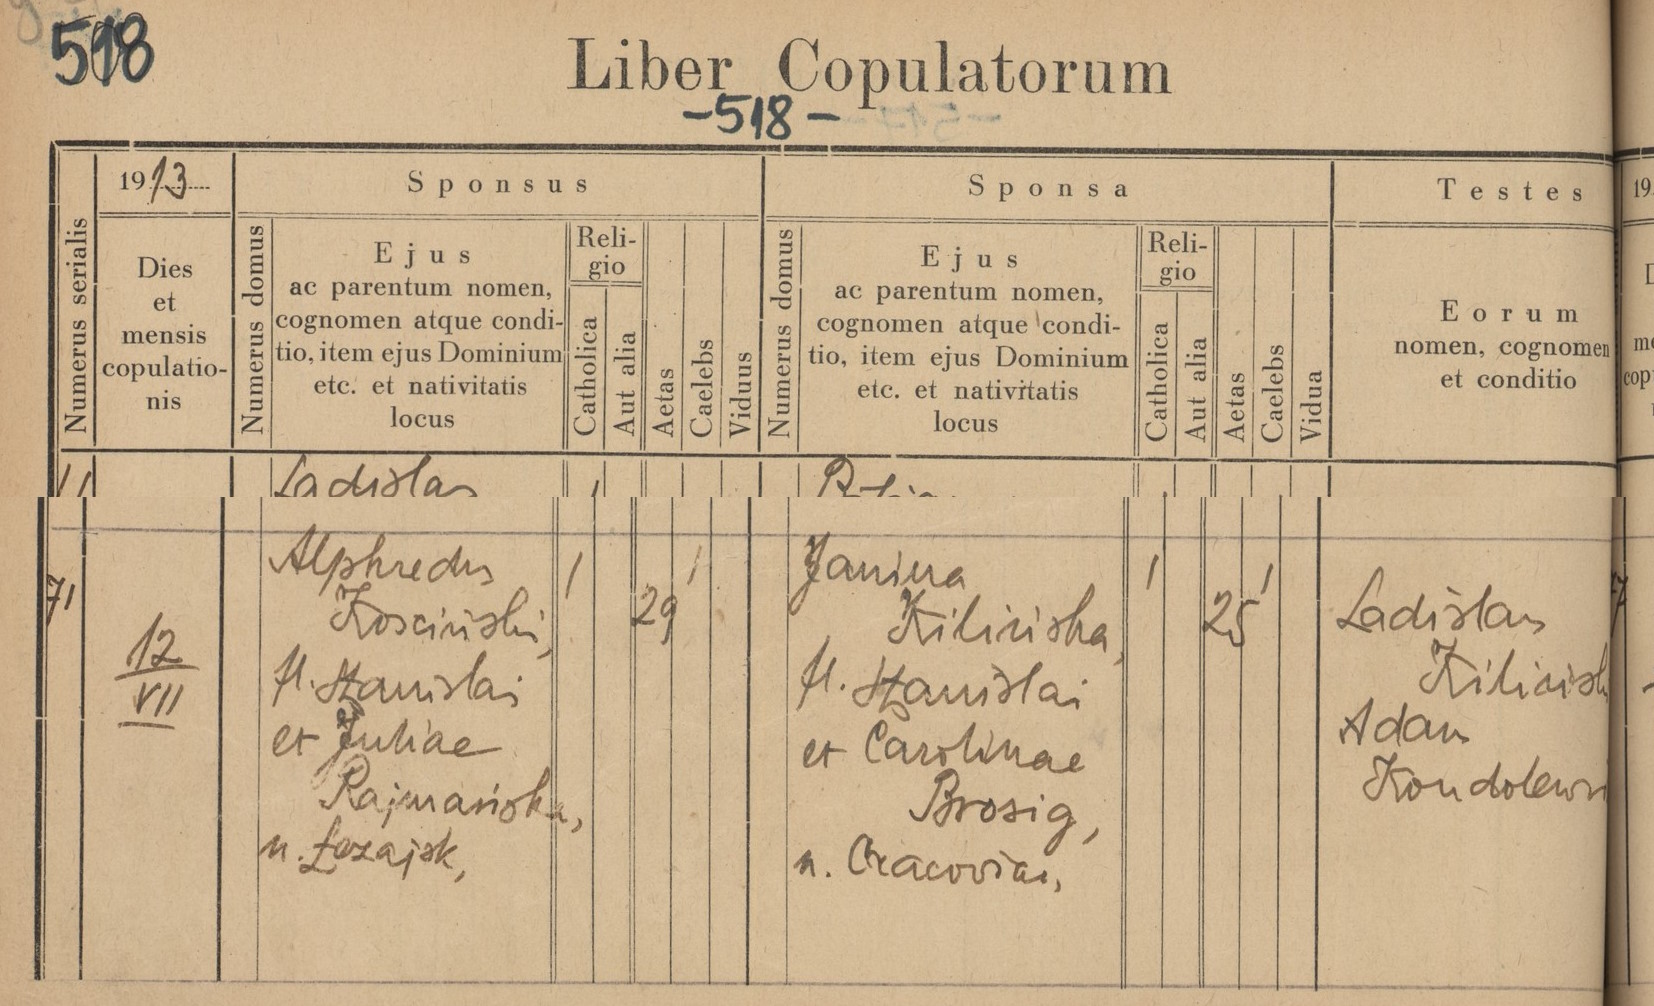 518
Liber Copulatorum
-518-
1913
Sponsus
Sponsa
Testes
19
Numerus serialis
Dies
et
mensis
copulatio-
nis
Numerus domus
Ejus
ac parentum nomen,
cognomen atque condi-
tio, item ejus Dominium
etc. et nativitatis
locus
Reli-
gio
Catholica
Aut alia
Aetas
Caelebs
Viduus
Numerus domus
Ejus
ac parentum nomen,
cognomen atque condi-
tio, item ejus Dominium
etc. et nativitatis
locus
Reli-
gio
Catholica
Aut alia
Aetas
Caelebs
Vidua
Eorum
nomen, cognomen
et conditio
Ladislaus
71
12
VII
Alphredus
Kosciński,
fl. Stanislai
et Juliae
Rajmańska,
n. Łezajsk,
1
29
1
Janina
Kilińska,
fl. Stanislai
et Carolinae
Brosig,
n. Cracoviae,
1
25
1
Ladislaus
Kilińsk
Adam